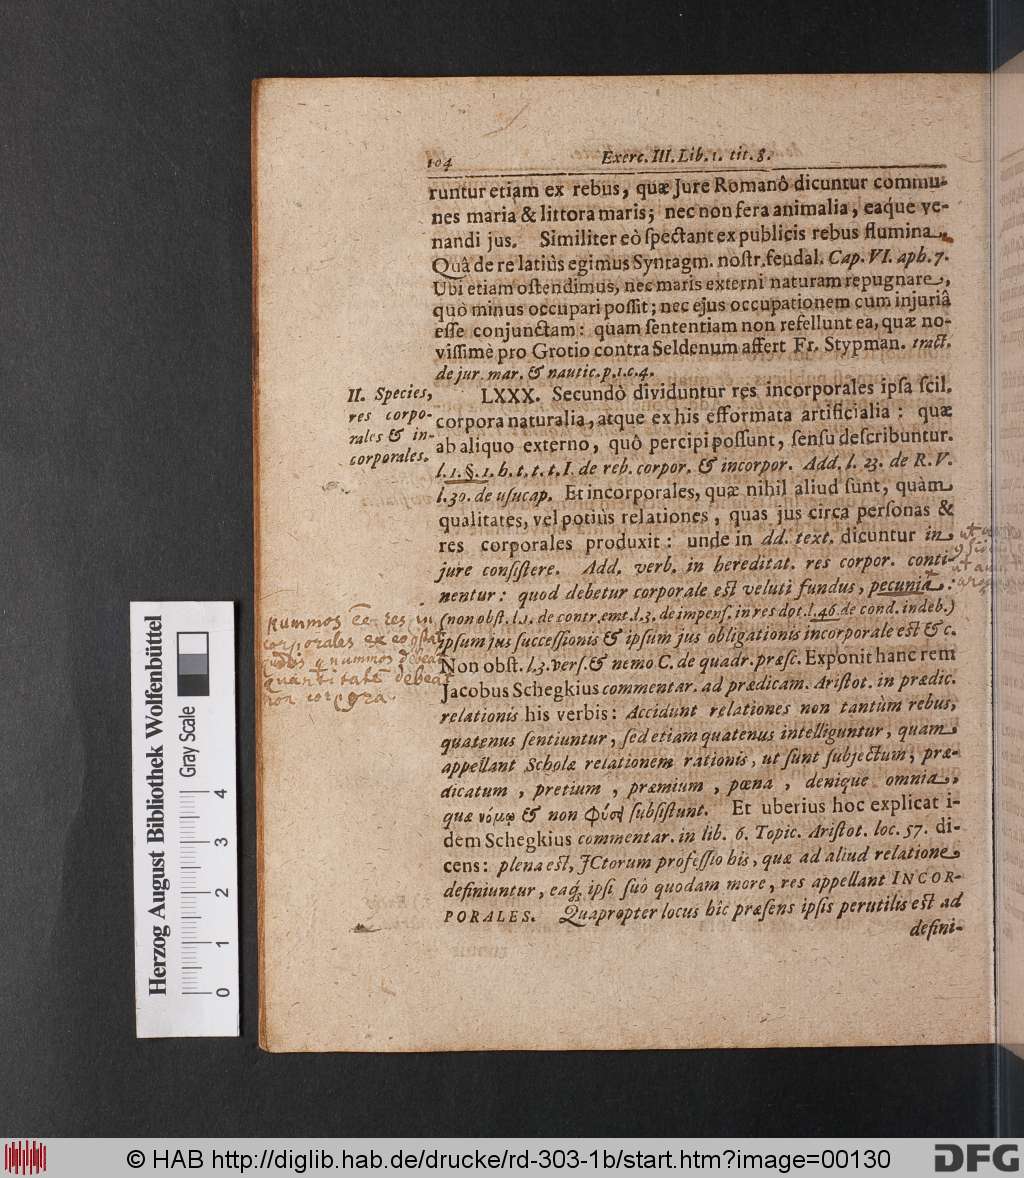 104 Exerc. III. Lib. 1. tit. 8.
runtur etiam ex rebus, quæ Jure Romanô dicuntur commu-
nes maria & littora maris; nec non fera animalia, eaque ve-
nandi jus. Similiter eò spectant ex publicis rebus flumina.
Quâ de re latiùs egimus Syntagm. nostr. feudal. Cap. VI. aph. 7.
Ubi etiam ostendimus, nec maris externi naturam repugnare,
quò minus occupari possit; nec ejus occupationem cum injuriâ
esse conjunctam: quam sententiam non refellunt ea, quæ no-
vissimè pro Grotio contra Seldenum affert Fr. Stypman. tract.
de jur. mar. & nautic. p. 1. c. 4.
II. Species,
res corpo-
rales & in-
corporales.
LXXX. Secundò dividuntur res incorporales ipsa scil.
corpora naturalia, atque ex his efformata artificialia: quæ
ab aliquo externo, quô percipi possunt, sensu describuntur.
l. 1. §. 1. h. t. t. t. I. de reb. corpor. & incorpor. Add. l. 23. de R. V.
l. 30. de usucap. Et incorporales, quæ nihil aliud sunt, quàm
qualitates, vel potiùs relationes, quas jus circa personas &
res corporales produxit: unde in dd. text. dicuntur in
jure consistere. Add. verb. in hereditat. res corpor. conti-
nentur: quod debetur corporale est veluti fundus, pecunia:
(non obst. l. 1. de contr. emt. l. 3. de impens. in res dot. l. 46. de cond. indeb.)
ipsum jus successionis & ipsum jus obligationis incorporale est & c.
Non obst. l. 3. vers. & nemo C. de quadr. præsc. Exponit hanc rem
Jacobus Schegkius commentar. ad prædicam. Aristot. in prædic.
relationis his verbis: Accidunt relationes non tantùm rebus,
quatenus sentiuntur, sed etiam quatenus intelliguntur, quam
appellant Scholæ relationem rationis, ut sunt subjectum, præ-
dicatum, pretium, præmium, pœna, denique omnia,
quæ νόμῳ & non φύσει subsistunt. Et uberius hoc explicat i-
dem Schegkius commentar. in lib. 6. Topic. Aristot. loc. 57. di-
cens: plena est, JCtorum professio his, quæ ad aliud relatione
definiuntur, eaq; ipsi suô quodam more, res appellant INCOR-
PORALES. Quapropter locus hîc præsens ipsis perutilis est ad
defini-
nummos eē res in
corporales ex eo
nummos debeat
quantitatē debeat
non corpora.
Herzog August Bibliothek Wolfenbüttel
Gray Scale
0 1 2 3 4
© HAB http://diglib.hab.de/drucke/rd-303-1b/start.htm?image=00130
DFG